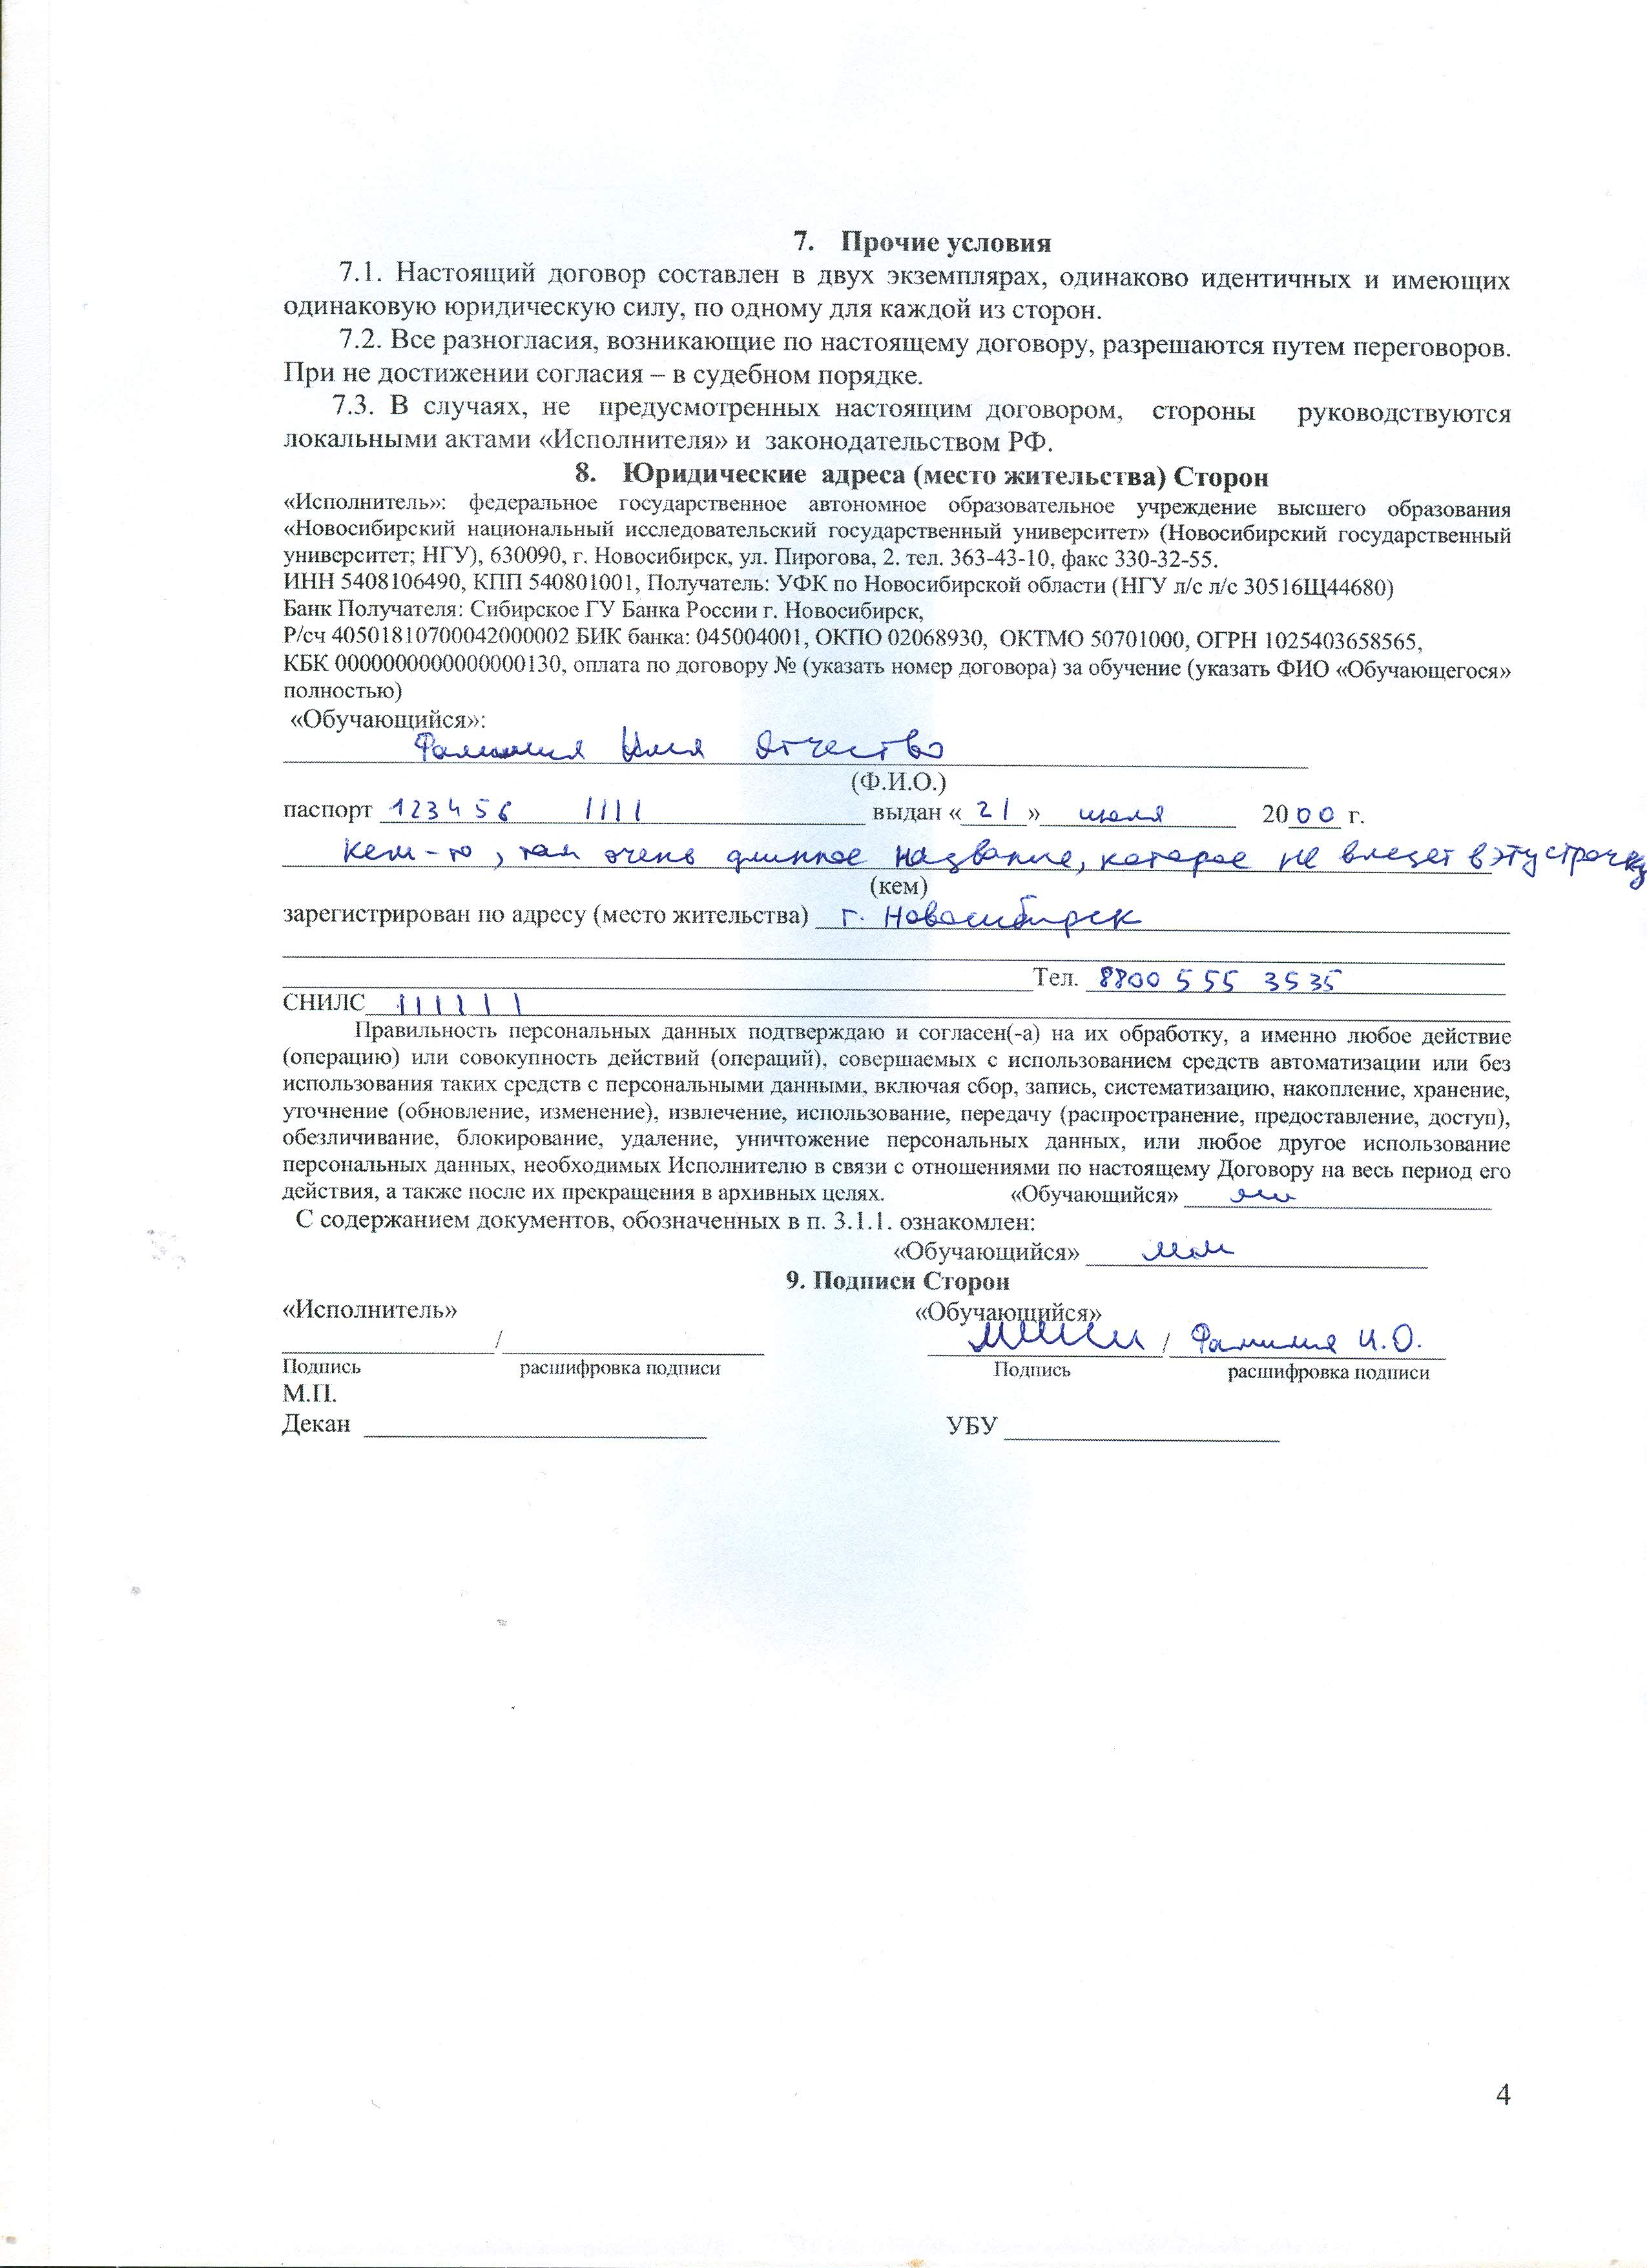 7. Прочие условия
7.1. Настоящий договор составлен в двух экземплярах, одинаково идентичных и имеющих
одинаковую юридическую силу, по одному для каждой из сторон.
7.2. Все разногласия, возникающие по настоящему договору, разрешаются путем переговоров.
При не достижении согласия – в судебном порядке.
7.3. В случаях, не предусмотренных настоящим договором, стороны руководствуются
локальными актами «Исполнителя» и законодательством РФ.
8. Юридические адреса (место жительства) Сторон
«Исполнитель»: федеральное государственное автономное образовательное учреждение высшего образования
«Новосибирский национальный исследовательский государственный университет» (Новосибирский государственный
университет; НГУ), 630090, г. Новосибирск, ул. Пирогова, 2. тел. 363-43-10, факс 330-32-55.
ИНН 5408106490, КПП 540801001, Получатель: УФК по Новосибирской области (НГУ л/с л/с 30516Щ44680)
Банк Получателя: Сибирское ГУ Банка России г. Новосибирск,
Р/сч 40501810700042000002 БИК банка: 045004001, ОКПО 02068930, ОКТМО 50701000, ОГРН 1025403658565,
КБК 00000000000000000130, оплата по договору № (указать номер договора) за обучение (указать ФИО «Обучающегося»
полностью)
«Обучающийся»:
Фамилия Имя Отчество
(Ф.И.О.)
паспорт 123456 1111 выдан «21» июля 2000 г.
кем-то, там очень длинное название, которое не влезет в эту строчку
(кем)
зарегистрирован по адресу (место жительства) г. Новосибирск
Тел. 8800 555 3535
СНИЛС 111111
Правильность персональных данных подтверждаю и согласен(-а) на их обработку, а именно любое действие
(операцию) или совокупность действий (операций), совершаемых с использованием средств автоматизации или без
использования таких средств с персональными данными, включая сбор, запись, систематизацию, накопление, хранение,
уточнение (обновление, изменение), извлечение, использование, передачу (распространение, предоставление, доступ),
обезличивание, блокирование, удаление, уничтожение персональных данных, или любое другое использование
персональных данных, необходимых Исполнителю в связи с отношениями по настоящему Договору на весь период его
действия, а также после их прекращения в архивных целях. «Обучающийся»
С содержанием документов, обозначенных в п. 3.1.1. ознакомлен:
«Обучающийся»
9. Подписи Сторон
«Исполнитель» «Обучающийся»
/ / Фамилия И.О.
Подпись расшифровка подписи Подпись расшифровка подписи
М.П.
Декан УБУ
4